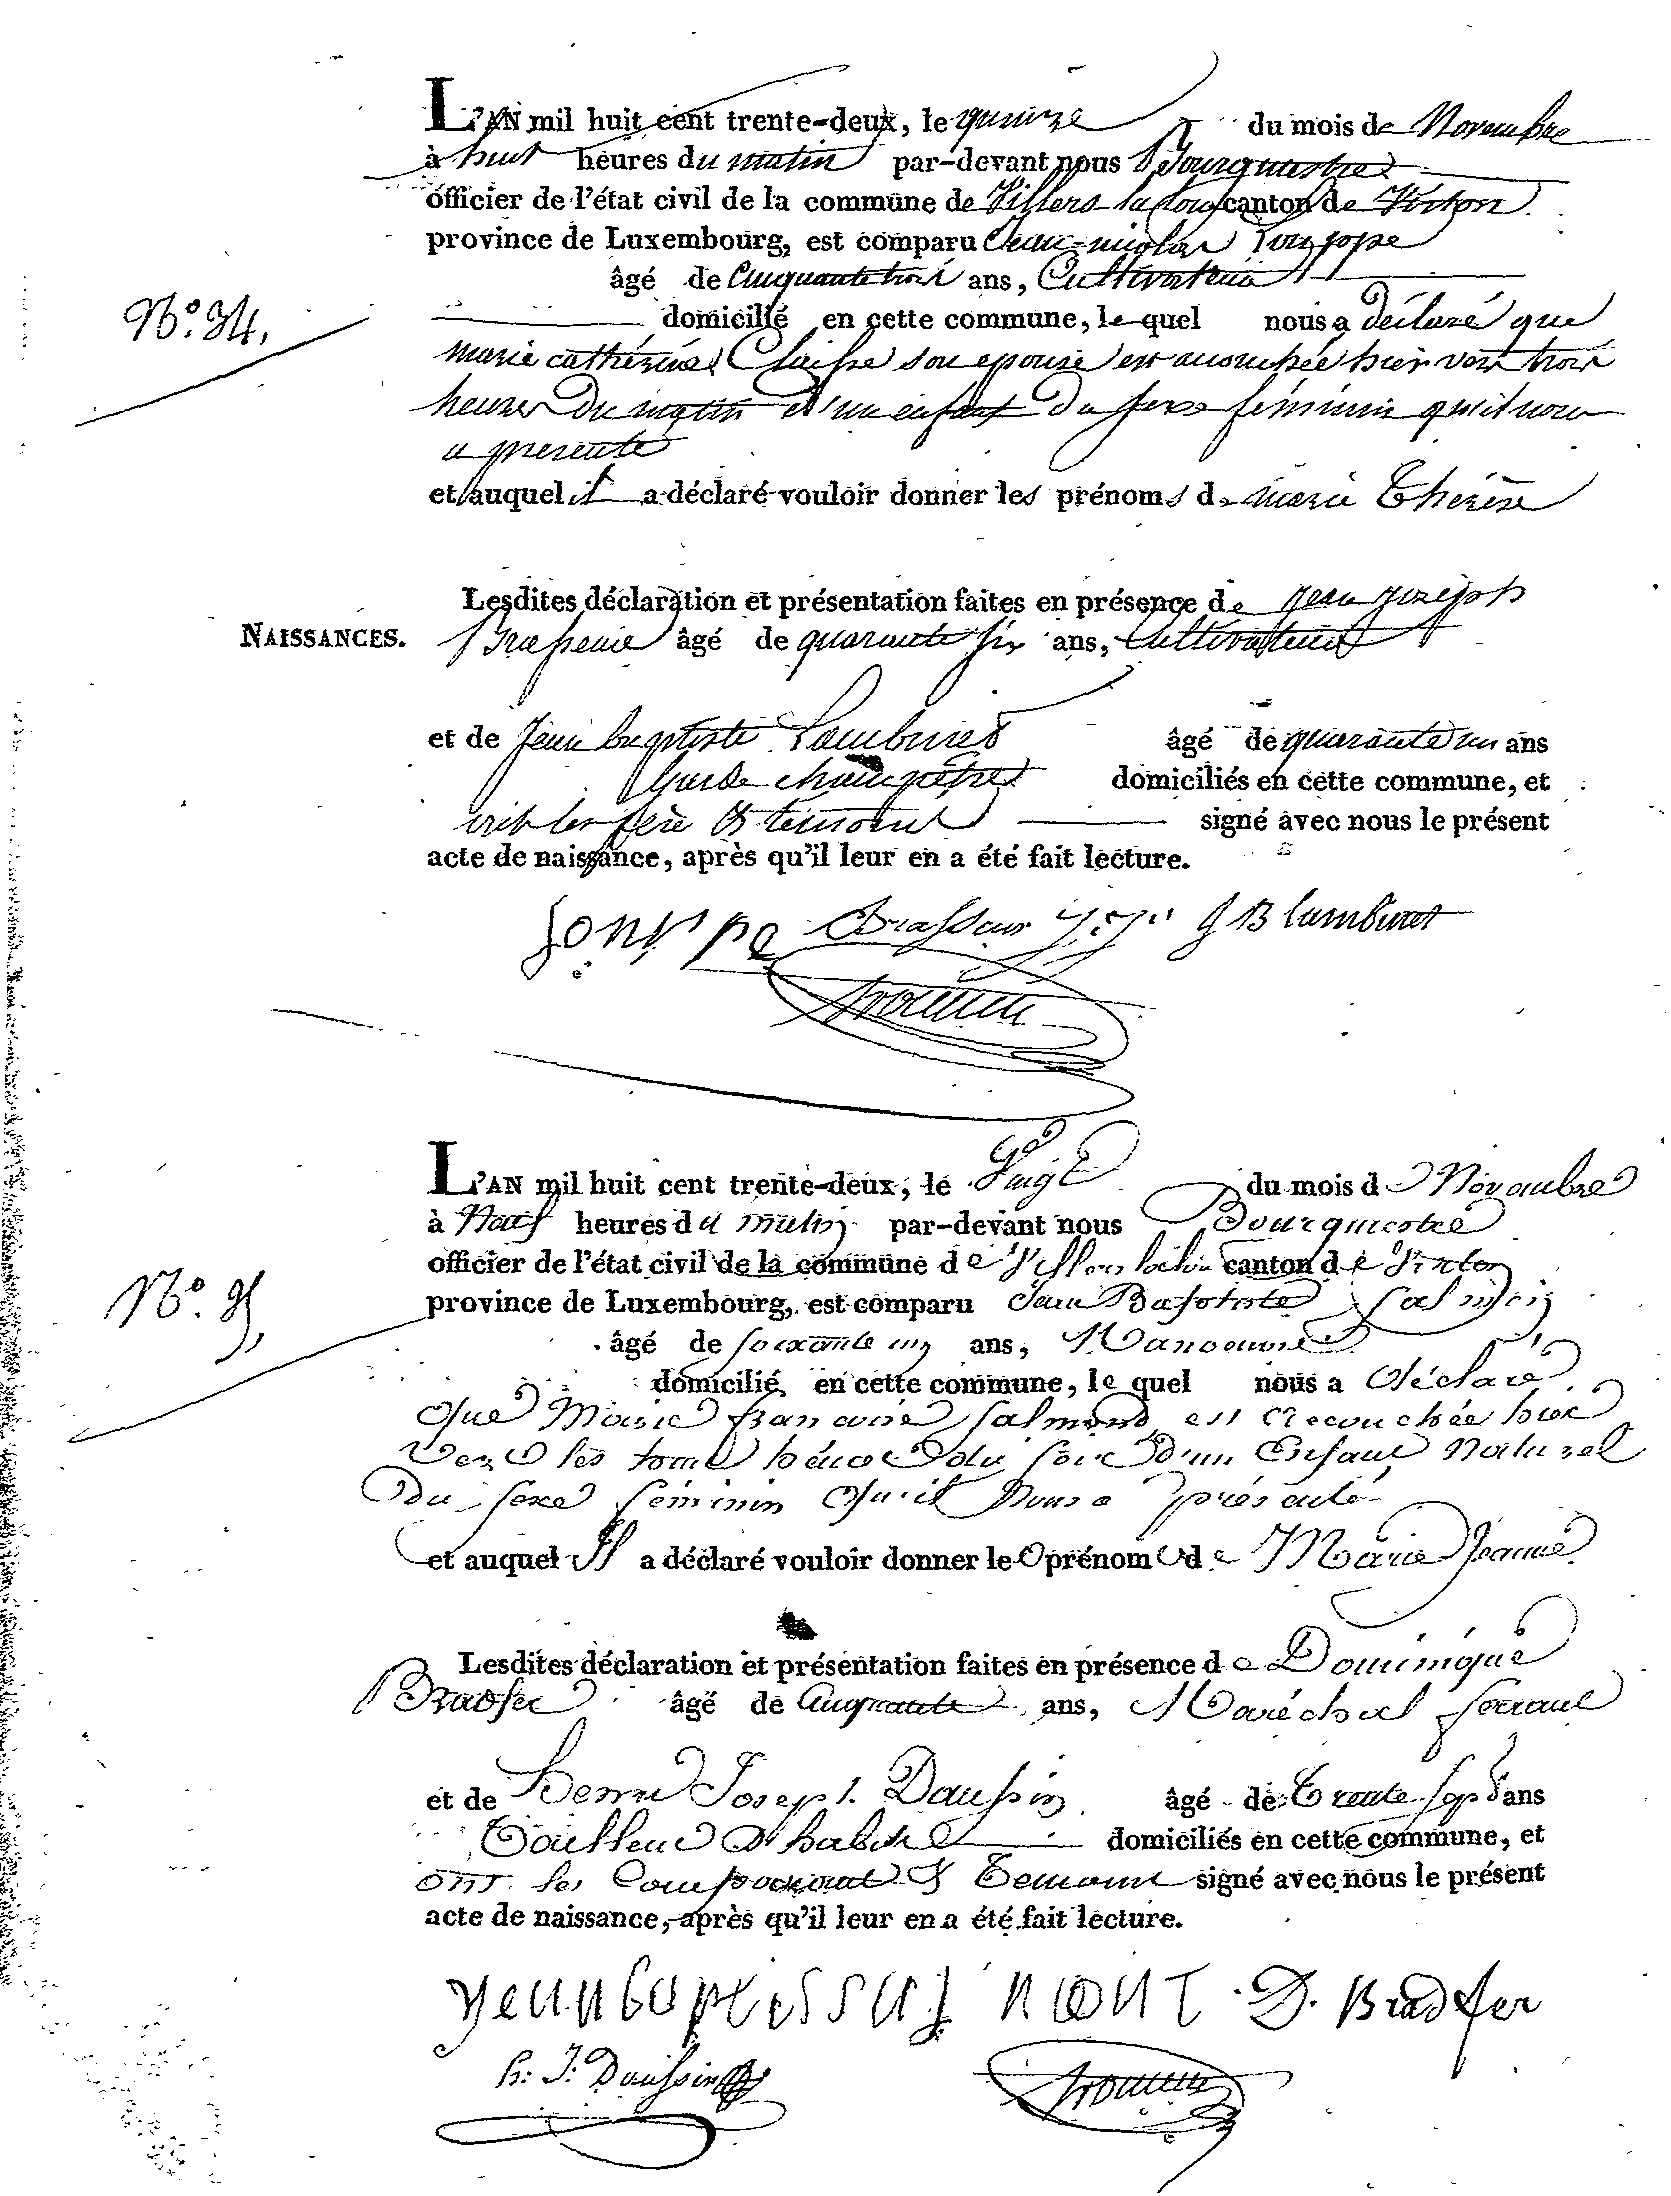 L'AN mil huit cent trente-deux, le quinze du mois de Novembre
à huit heures du matin par-devant nous Bourgmestre
officier de l'état civil de la commune de Villers la Loue canton de Virton
province de Luxembourg, est comparu Jean-nicolas
âgé de Cinquante trois ans, Cultivateur
N.º 34.
domicilié en cette commune, lequel nous a déclaré que
marie catherine son epouse est accouchée hier vers trois
heures du matin d'un enfant du sexe féminin qu'il nous
a presenté
et auquel il a déclaré vouloir donner les prénoms de marie Thérèse
Lesdites déclaration et présentation faites en présence de jean joseph
NAISSANCES.
âgé de quarante six ans, Cultivateur
et de Jean baptiste Lamburet âgé de quarante un ans
Garde champêtre domiciliés en cette commune, et
ont les père & temoins signé avec nous le présent
acte de naissance, après qu'il leur en a été fait lecture.
Brasseur J B lamburet
L'AN mil huit cent trente-deux, le Vingt du mois de Novembre
à Neuf heures du matin par-devant nous Bourgmestre
officier de l'état civil de la commune de Villers la Loue canton de Virton
province de Luxembourg, est comparu Jean Baptiste Salmon
N.º 35,
âgé de soixante un ans, Manoeuvre
domicilié en cette commune, lequel nous a Déclaré
Que Marie francoise Salmon est Accouchée hier
Vers les heures du soir d'un Enfant Naturel
Du sexe féminin Qu'il Nous a présenté
et auquel Il a déclaré vouloir donner les prénoms de Marie Jeanne
Lesdites déclaration et présentation faites en présence de Dominique
Bradfer âgé de Cinquante ans, Maréchal ferrant
et de Henri Joseph Daussin âgé de Trente sept ans
Tailleur D'habits domiciliés en cette commune, et
ont les Comparant & Temoins signé avec nous le présent
acte de naissance, après qu'il leur en a été fait lecture.
D. Bradfer
h: J: Daussin